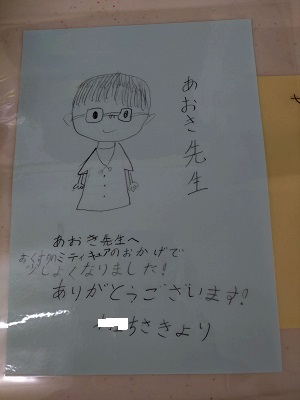 あおき先生
あおき先生へ
おくすりとミティキュアのおかげで
少しよくなりました!
ありがとうございます!
さきより